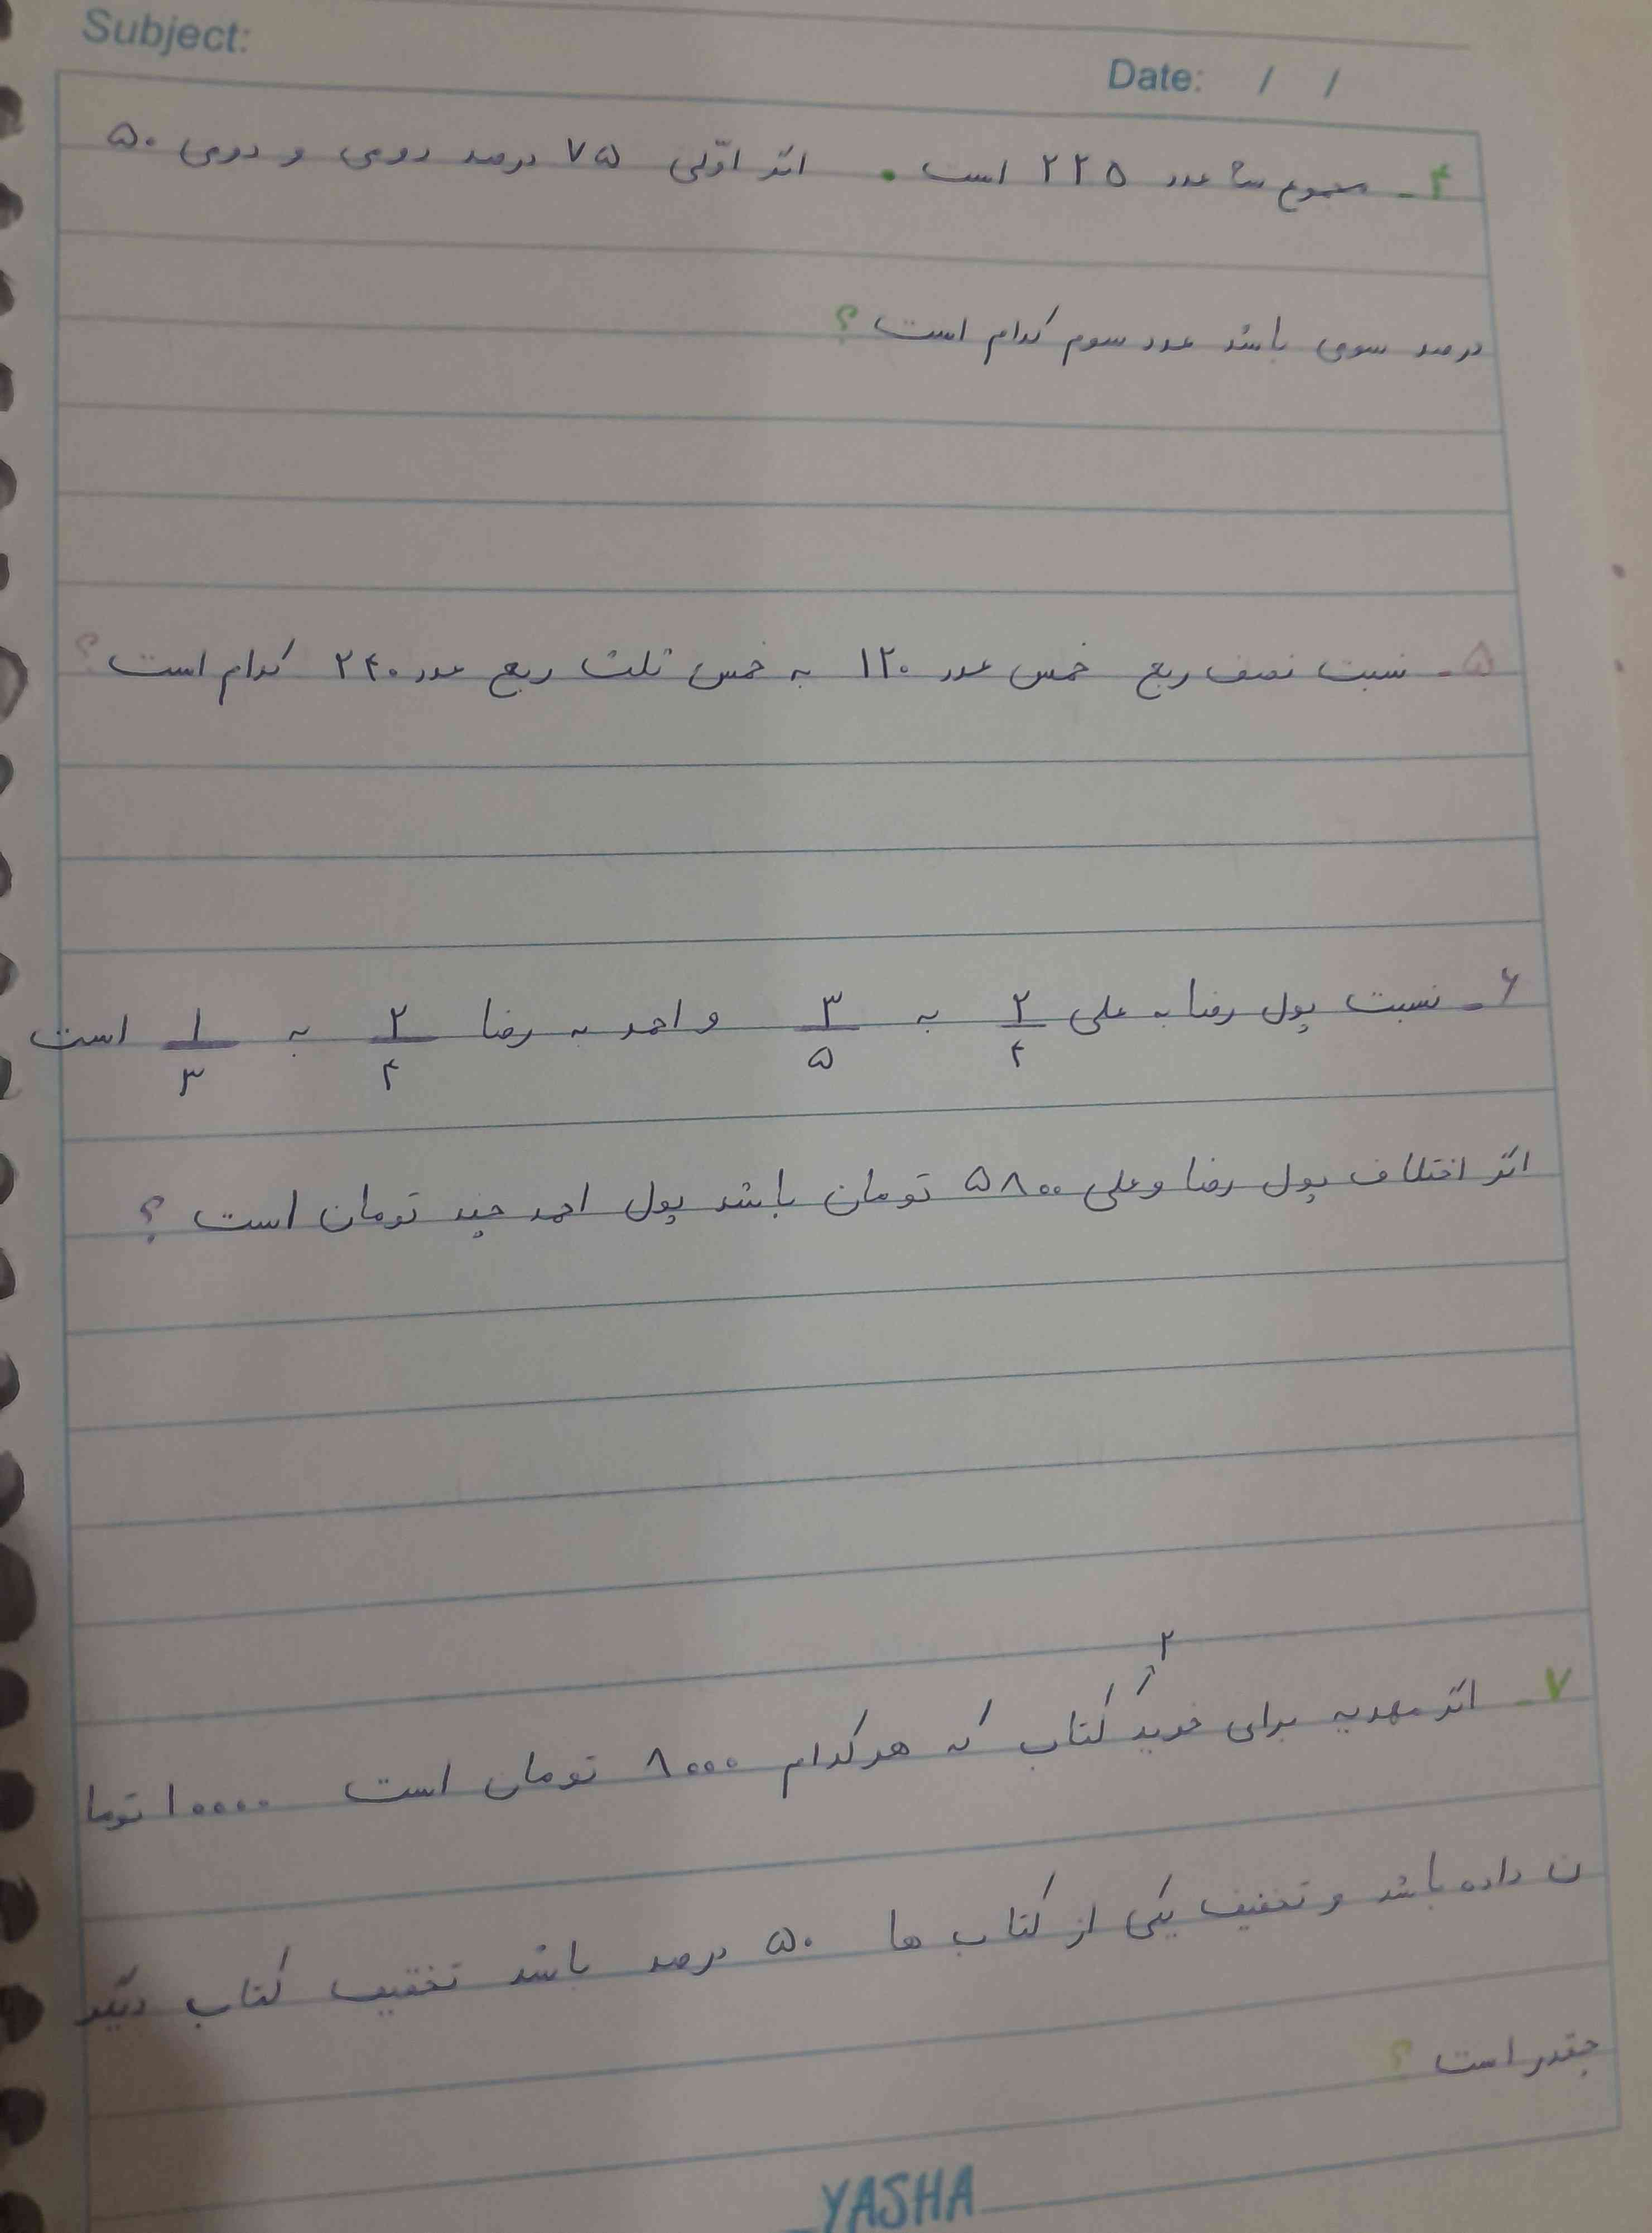 Subject:
Date: / /
۴- مجموع سه عدد ۲۲۵ است. اگر اوّلی ۷۵ درصد دومی و دومی ۵۰
درصد سومی باشد عدد سوم کدام است؟
۵- نسبت نصف ربع خمس عدد ۱۲۰ به خمس ثلث ربع عدد ۲۴۰ کدام است؟
۶- نسبت پول رضا به علی ۲/۴ به ۳/۵ و احمد به رضا ۲/۴ به ۱/۳ است
اگر اختلاف پول رضا و علی ۵۸۰۰ تومان باشد پول احمد چند تومان است؟
۷- اگر مهدیه برای خرید ۲ کتاب که هر کدام ۸۰۰۰ تومان است ۱۰۰۰۰ توما
ن داده باشد و تخفیف یکی از کتاب ها ۵۰ درصد باشد تخفیف کتاب دیگر
چقدر است؟
YASHA